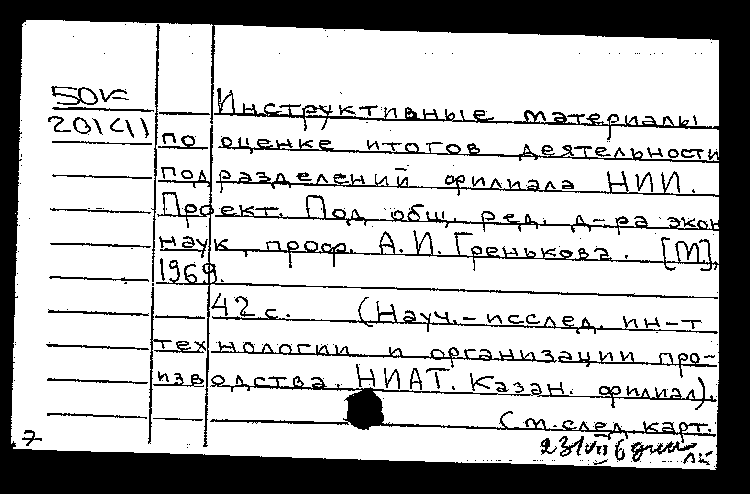 50К
201(1)
Инструктивные материалы
по оценке итогов деятельности
подразделений филиала НИИ.
Проект. Под общ. ред. д-ра экон
наук, проф. А.И. Гренькова. [М],
1969.
42 с. (Науч.-исслед. ин-т
технологии и организации про-
изводства. НИАТ. Казан. филиал).
См. след. карт.
7